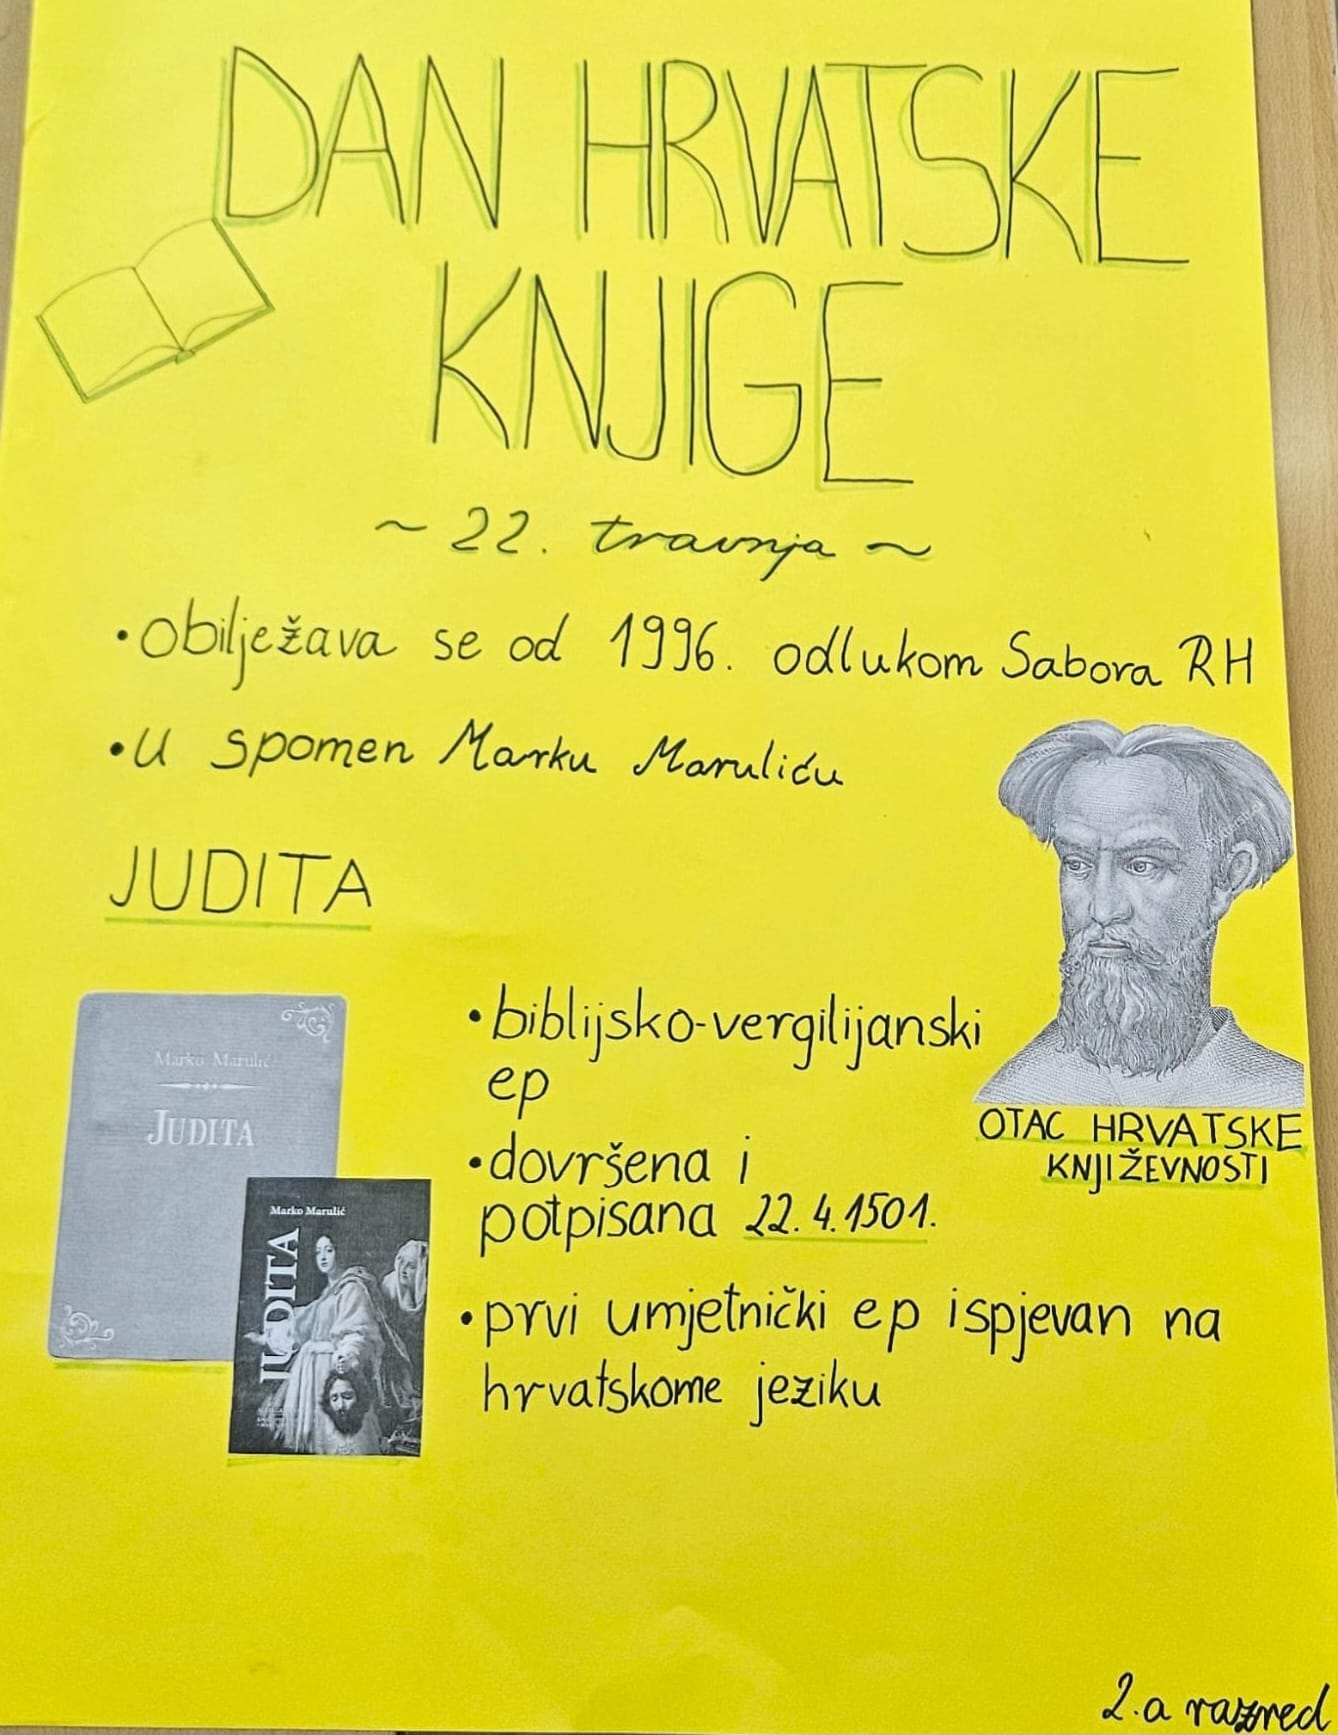 DAN HRVATSKE
KNJIGE
~ 22. travnja ~
• obilježava se od 1996. odlukom Sabora RH
• U spomen Marku Maruliću
JUDITA
Marko Marulić
JUDITA
Marko Marulić
JUDITA
• biblijsko-vergilijanski
ep
• dovršena i
potpisana 22.4.1501.
• prvi umjetnički ep ispjevan na
hrvatskome jeziku
OTAC HRVATSKE
KNJIŽEVNOSTI
2.a razred